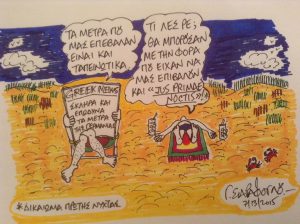 ΤΑ ΜΕΤΡΑ ΠΟΥ
ΜΑΣ ΕΠΕΒΑΛΑΝ
ΕΙΝΑΙ ΚΑΙ
ΤΑΠΕΙΝΩΤΙΚΑ.
ΤΙ ΛΕΣ ΡΕ;
ΘΑ ΜΠΟΡΟΥΣΑΝ
ΜΕ ΤΗΝ ΦΟΡΑ
ΠΟΥ ΕΙΧΑΝ ΝΑ
ΜΑΣ ΕΠΙΒΑΛΟΥΝ
ΚΑΙ «JUS PRIMAE
NOCTIS»*
GREEK NEWS
ΣΚΛΗΡΑ ΚΑΙ
ΕΠΩΔΥΝΑ
ΤΑ ΜΕΤΡΑ
ΤΗΣ ΓΕΡΜΑΝΙΑΣ
* ΔΙΚΑΙΩΜΑ ΠΡΩΤΗΣ ΝΥΧΤΑΣ